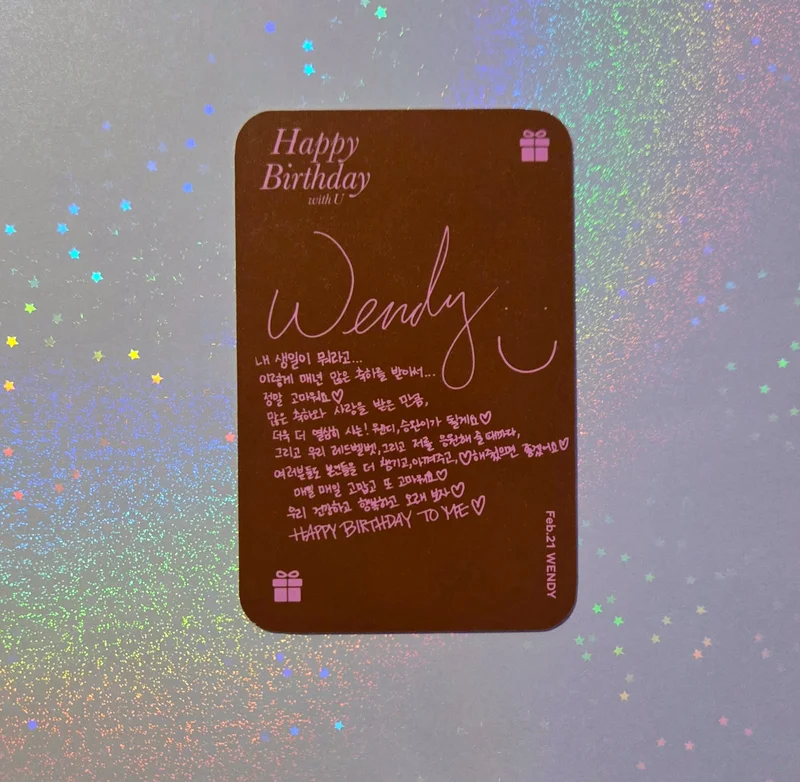 Happy
Birthday
with U
Wendy
내 생일이 뭐라고...
이렇게 매년 많은 축하를 받아서...
정말 고마워요♡
많은 축하와 사랑을 받은 만큼,
더욱 더 열심히 사는! 웬디, 승완이가 될게요♡
그리고 우리 레드벨벳, 그리고 저를 응원해 줄 때마다,
여러분들도 본인들을 더 챙기고, 아껴주고, ♡해주셨으면 좋겠어요♡
매일 매일 고맙고 또 고마워요♡
우리 건강하고 행복하고 오래 보자♡
HAPPY BIRTHDAY TO ME♡
Feb.21 WENDY